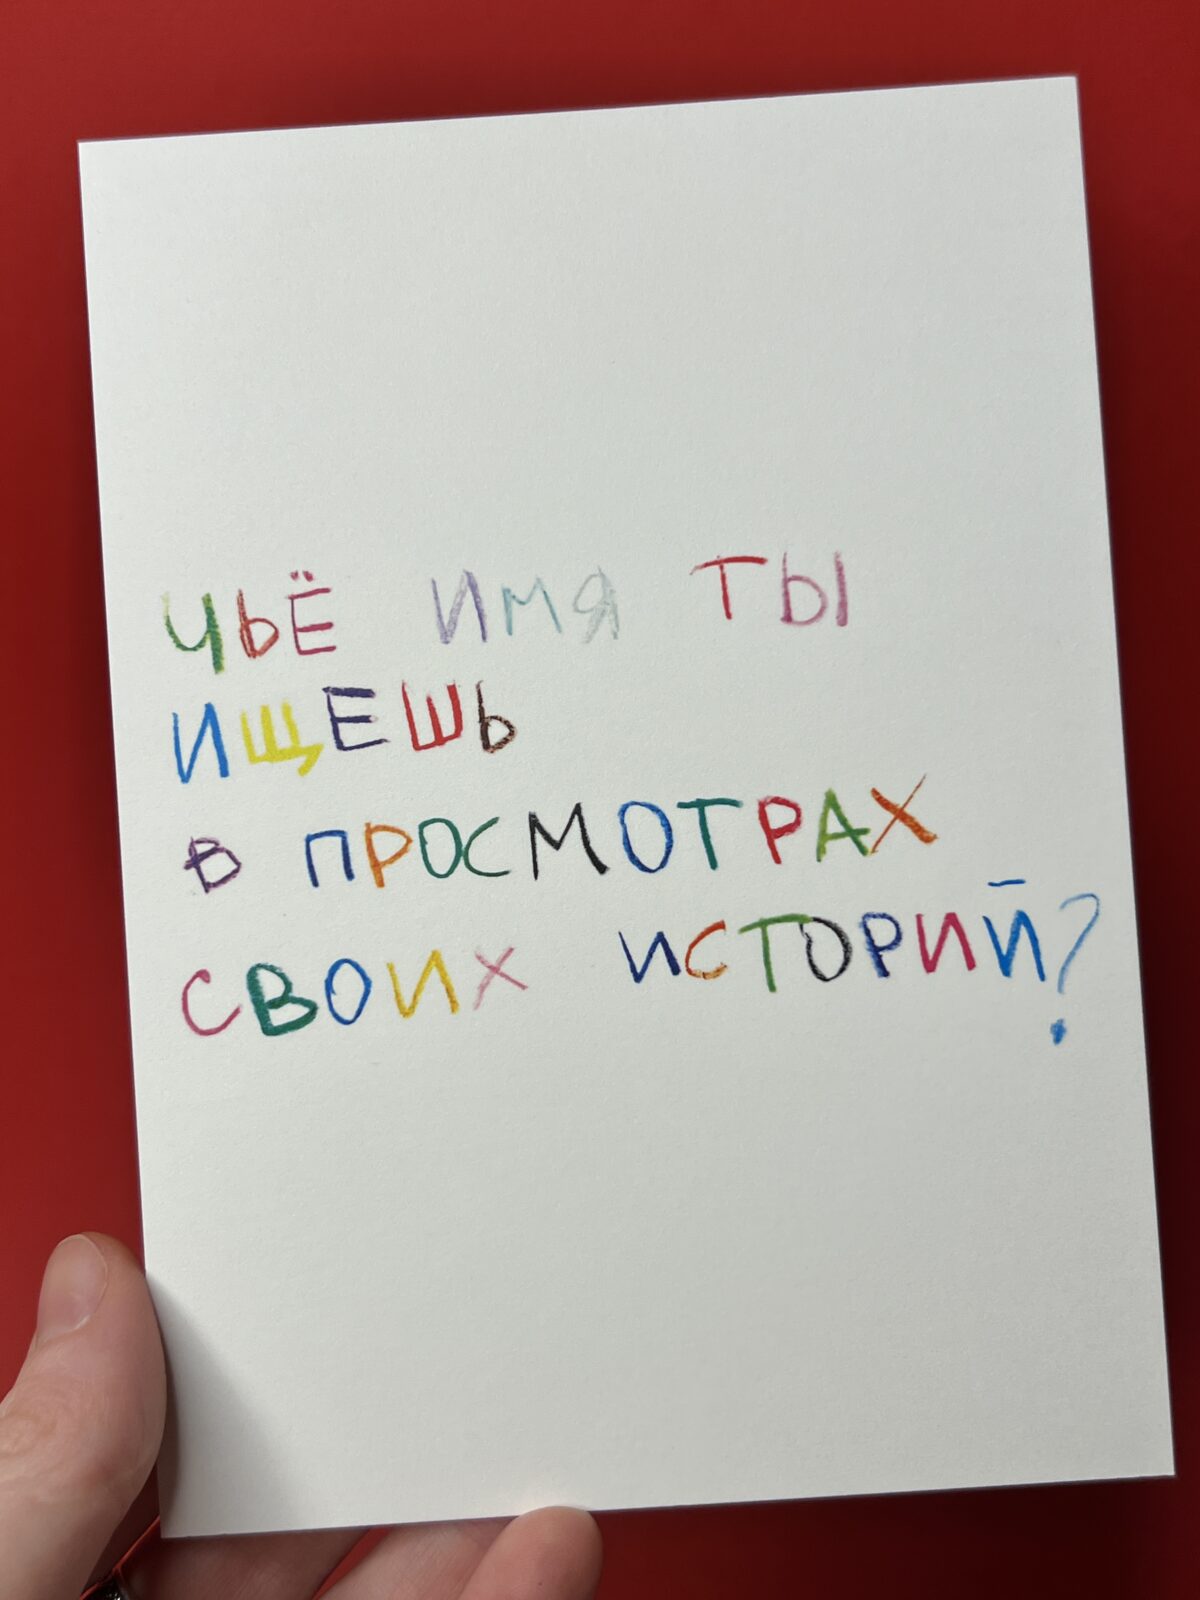 ЧЬЁ ИМЯ ТЫ
ИЩЕШЬ
В ПРОСМОТРАХ
СВОИХ ИСТОРИЙ?